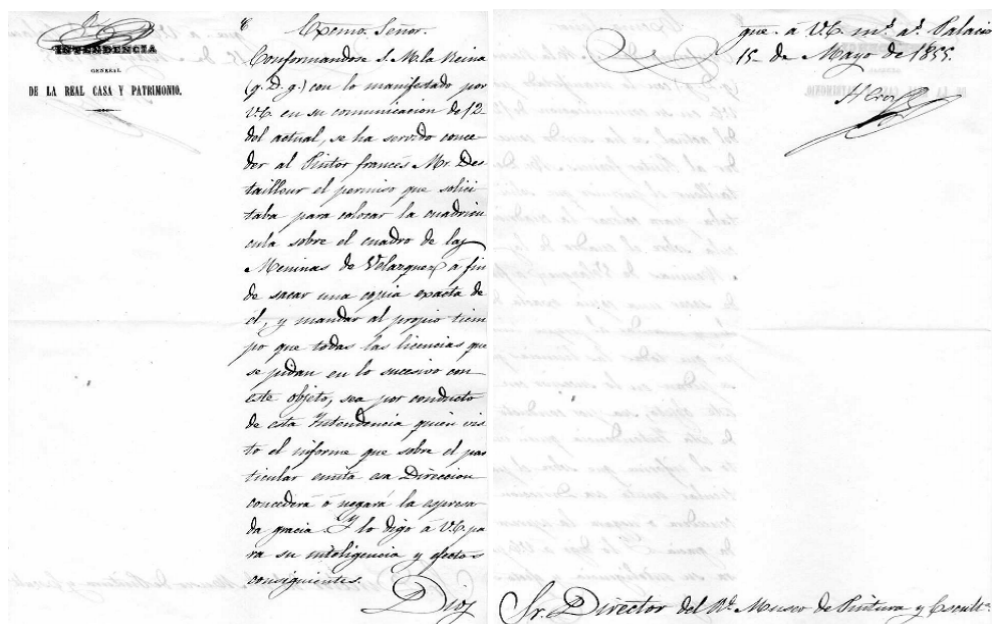 INTENDENCIA
GENERAL
DE LA REAL CASA Y PATRIMONIO.
Exomo. Señor.
Conformandose S. M. la Reina
(q. D. g.) con lo manifestado por
V. E. en su comunicacion de 12
del actual, se ha servido conce
der al Pintor francés Mr. Des
tailleur el permiso que solici
taba para colocar la cuadrícu
cula sobre el cuadro de las
Meninas de Velazquez a fin
de sacar una copia exacta de
él, y mandar al propio tiem
po que todas las licencias que
se pidan en lo sucesivo con
este objeto, sea por conducto
de esta Intendencia quien vis
to el informe que sobre el par
ticular emita esa Direccion
concederá ó negará la espresa
da gracia. Y lo digo á V. E. pa
ra su inteligencia y efectos
consiguientes.
Dios
que. á V. E. ms. as. Palacio
15 de Mayo de 1855.
Sr. Director del Rl. Museo de Pintura y Escultª.